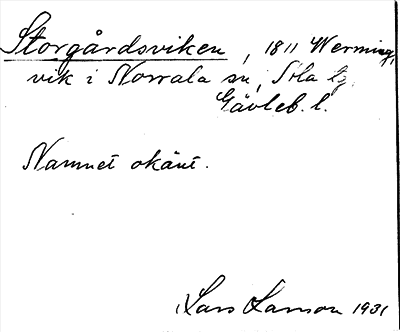 Storgårdsviken, 1811 Werming,
vik i Norrala sn,
Gävleb. l.
Namnet okänt.
Lars Larson 1931